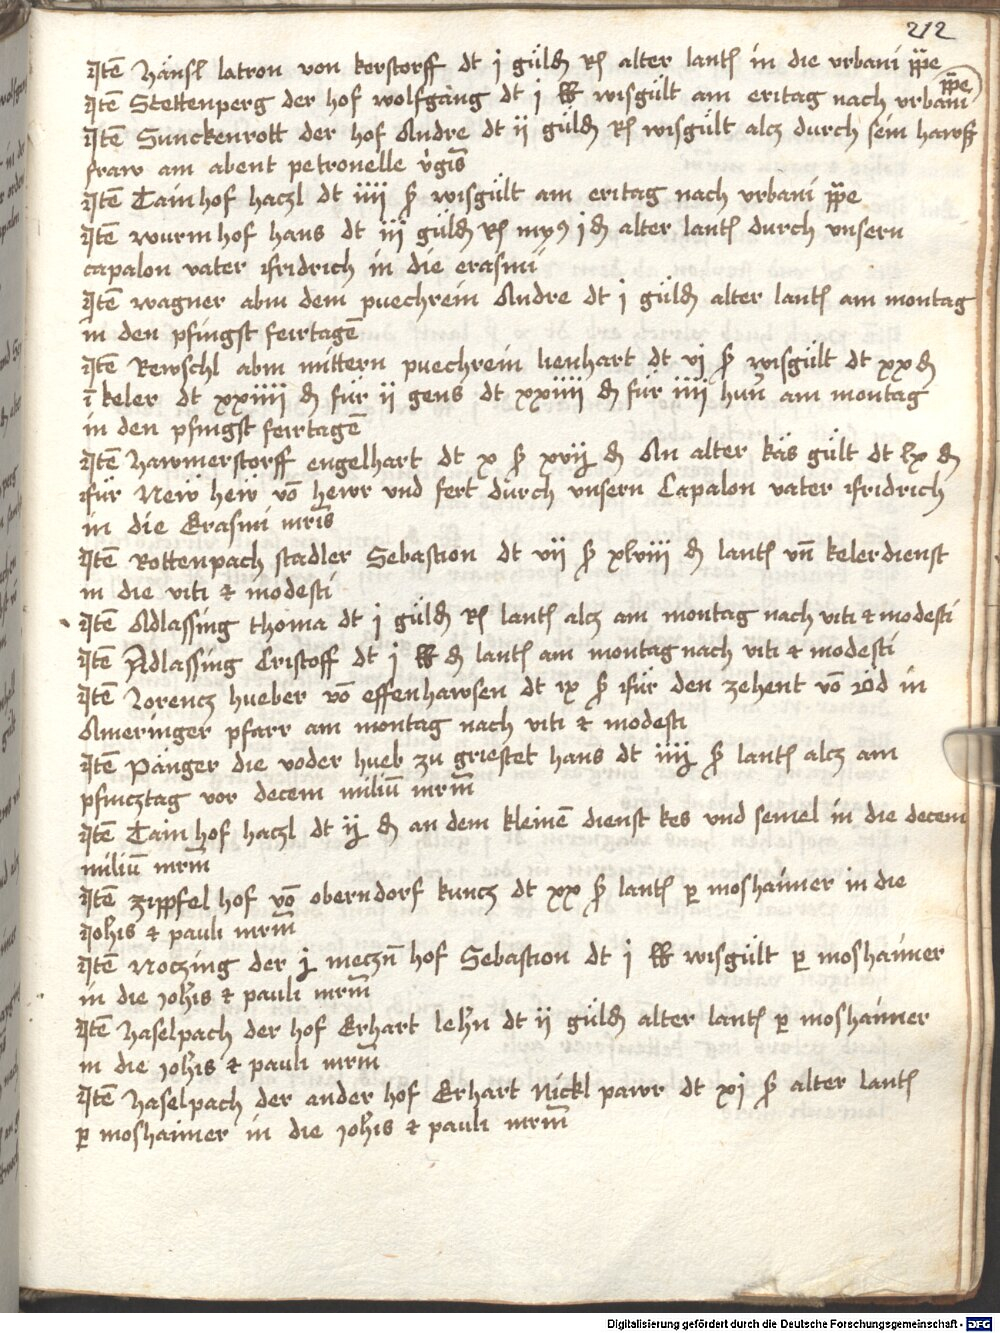 212
Itē Hänsl latron von kerstorff dt j güld Rh alter lantſ in die vrbani pp̄e
Itē Stettenperg der hof wolfgang dt j ℔ wisgült am eritag nach vrbani pp̄e
Itē Sunckenrott der hof Andre dt ij güld Rh wisgült alcz durch sein hawß
fraw am abent petronelle v̓gīs
Itē Tainhof haczl dt iiij ß wisgült am eritag nach vrbani pp̄e
Itē wurmhof hans dt iij güld Rh j ₰ alter lantſ durch vnsern
capalon vater ffridrich in die erasmi
Itē wagner abm dem puechrein Andre dt j güld alter lantſ am montag
in den pfingst feirtagē
Itē Rewschl abm mittern puechrein lienhart dt vj ß wisgült dt xx ₰
ī keler dt xxiiij ₰ für ij gens dt xxiiij ₰ für iiij hun̄ am montag
in den pfingst feirtagē
Itē Hawmerstorff engelhart dt x ß xvij ₰ An alter käs gült dt lx ₰
ffür Neẅ heẅ vō hewr vnd fert durch vnsern Capalon vater ffridrich
in die Erasmi mr̄is
Itē Rottenpach stadler Sebastion dt vij ß xlviii ₰ lantſ vn̄ kelerdienst
in die viti & modesti
Itē Adlassing thoma dt j güld Rh lantſ alcz am montag nach viti & modesti
Itē Adlassing Cristoff dt j ℔ ₰ lantſ am montag nach viti & modesti
Itē Lorencz hueber vō effenhawsen dt ix ß ffür den zehent vō Öd in
Ameringer pfarr am montag nach viti & modesti
Itē Pänger die voder hueb zu griestet hans dt iiij ß lantſ alcz am
pfincztag vor decem miliū mrm̄
Itē Tainhof haczl dt ij ₰ an dem kleinē dienst kes vnd semel in die decem
miliū mrm̄
Itē zipffel hof vō oberndorf kuncz dt xx ß lantſ ꝑ moshaimer in die
Ioh̄is & pauli mrm̄
Itē Noczing der j meczn̄ hof Sebastion dt j ℔ wisgült ꝑ moshaimer
in die ioh̄is & pauli mrm̄
Itē Haselpach der hof Erhart leh̄n dt ij güld alter lantſ ꝑ moshaimer
in die ioh̄is & pauli mrm̄
Itē Haselpach der ander hof Erhart Nickl pawr dt xj ß alter lantſ
ꝑ moshaimer in die ioh̄is & pauli mrm̄
Digitalisierung gefördert durch die Deutsche Forschungsgemeinschaft - DFG